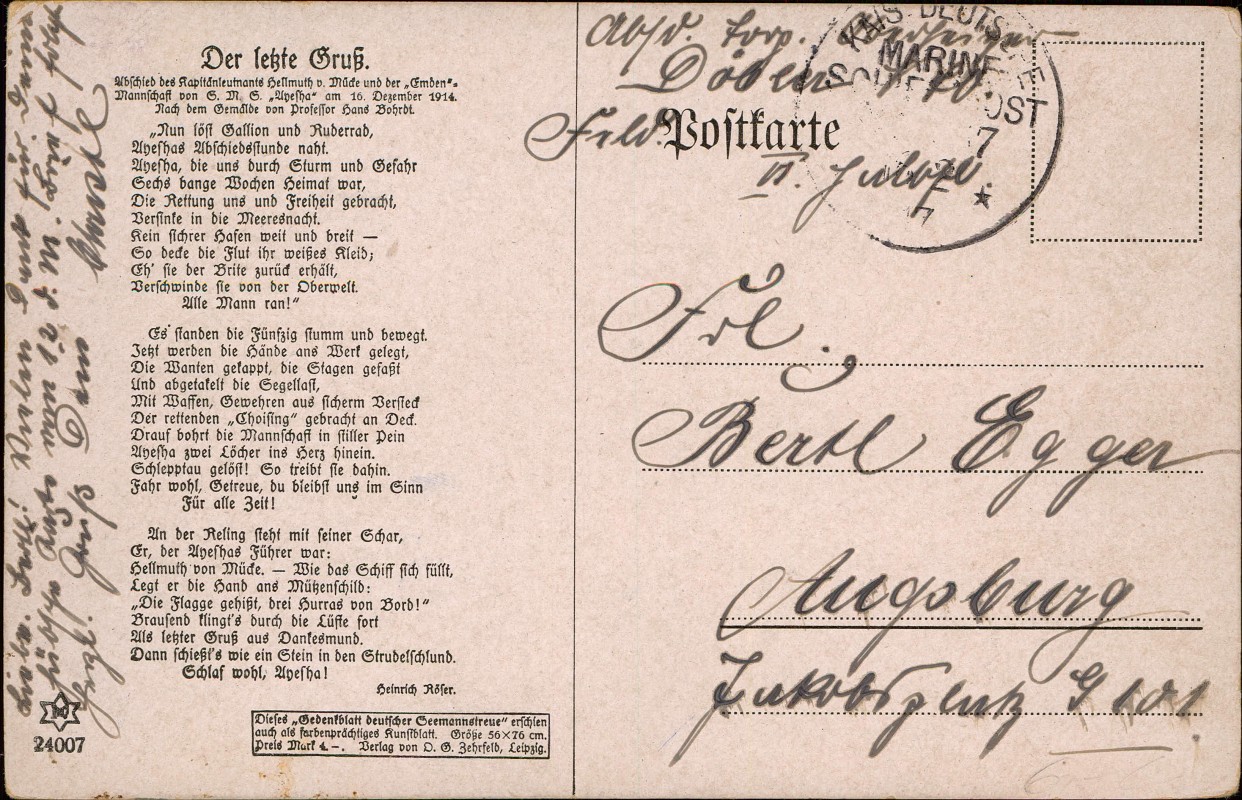 Der letzte Gruß.
Abschied des Kapitänleutnants Hellmuth v. Mücke und der „Emden“-
Mannschaft von S. M. S. „Ayesha“ am 16. Dezember 1914.
Nach dem Gemälde von Professor Hans Bohrdt.
„Nun löst Gallion und Ruderrad,
Ayeshas Abschiedsstunde naht.
Ayesha, die uns durch Sturm und Gefahr
Sechs bange Wochen Heimat war,
Die Rettung uns und Freiheit gebracht,
Versinke in die Meeresnacht.
Kein sichrer Hafen weit und breit —
So decke die Flut ihr weißes Kleid;
Eh' sie der Brite zurück erhält,
Verschwinde sie von der Oberwelt.
Alle Mann ran!“
Es standen die Fünfzig stumm und bewegt.
Jetzt werden die Hände ans Werk gelegt,
Die Wanten gekappt, die Stagen gefaßt
Und abgetakelt die Segellast,
Mit Waffen, Gewehren aus sicherm Versteck
Der rettenden „Choising“ gebracht an Deck.
Drauf bohrt die Mannschaft in stiller Pein
Ayesha zwei Löcher ins Herz hinein.
Schlepptau gelöst! So treibt sie dahin.
Fahr wohl, Getreue, du bleibst uns im Sinn
Für alle Zeit!
An der Reling steht mit seiner Schar,
Er, der Ayeshas Führer war:
Hellmuth von Mücke. — Wie das Schiff sich füllt,
Legt er die Hand ans Mützenschild:
„Die Flagge gehißt, drei Hurras von Bord!“
Brausend klingt's durch die Lüfte fort
Als letzter Gruß aus Dankesmund.
Dann schießt's wie ein Stein in den Strudelschlund.
Schlaf wohl, Ayesha!
Heinrich Röser.
Dieses „Gedenkblatt deutscher Seemannstreue“ erschien
auch als farbenprächtiges Kunstblatt. Größe 56×76 cm.
Preis Mark 4.—. Verlag von O. G. Zehrfeld, Leipzig.
24007
Vielen Dank für
Gruß Dein
Absd. Torp.
Feld
Postkarte
II.
KAIS. DEUTSCHE
MARINE
POST
7
Frl.
Bertl Egger
Augsburg
Jakobsplatz